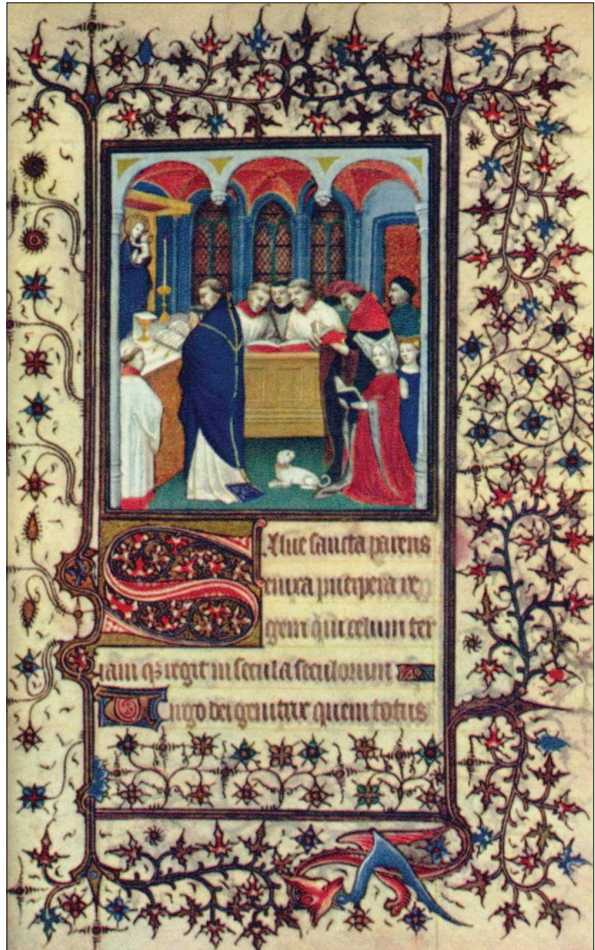 Salue sancta parens
enixa puerpera re
gem qui celum ter
ram qꝫ regit in secula seculorum
Uirgo dei genitrix quem totus